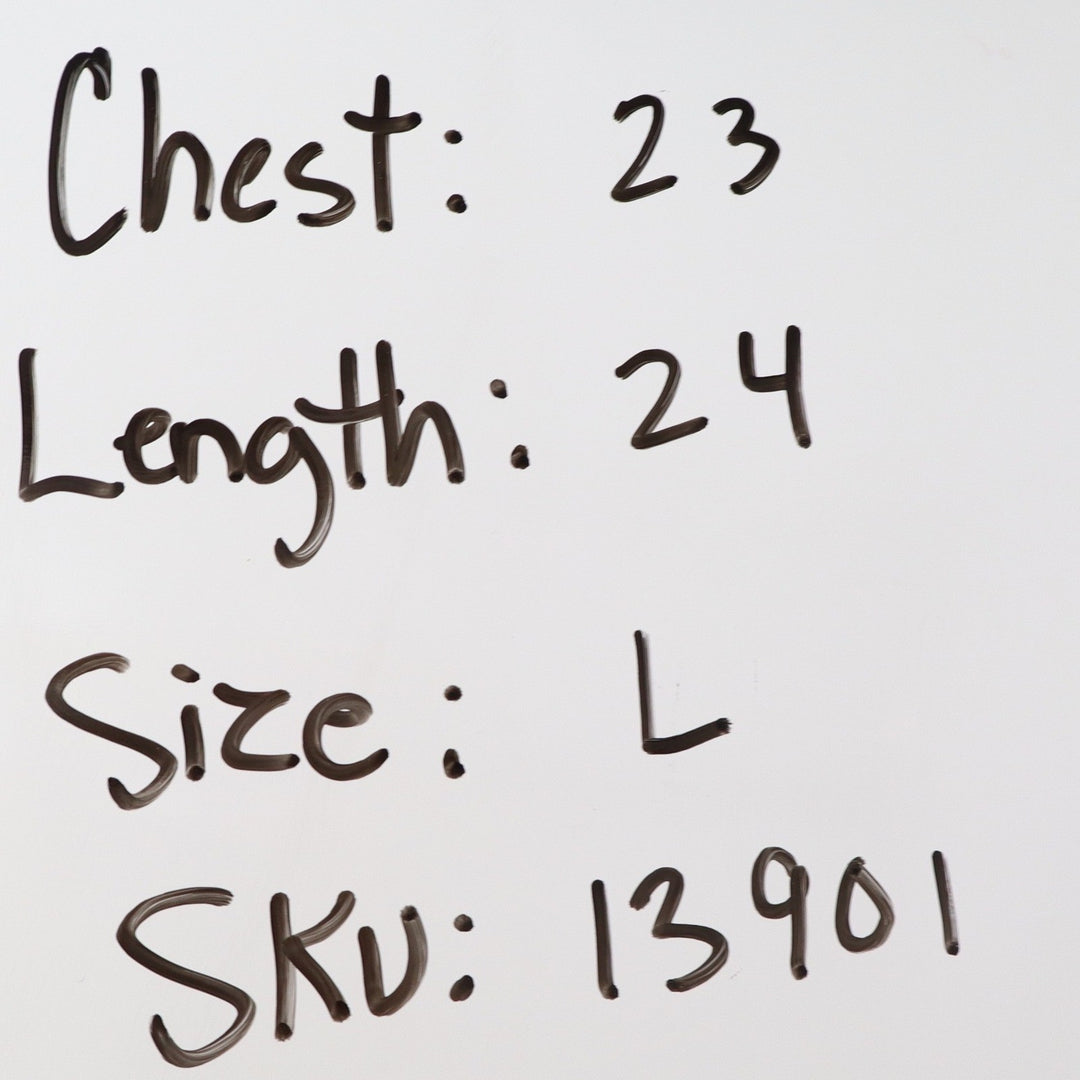 Chest: 23
Length: 24
Size: L
SKU: 13901